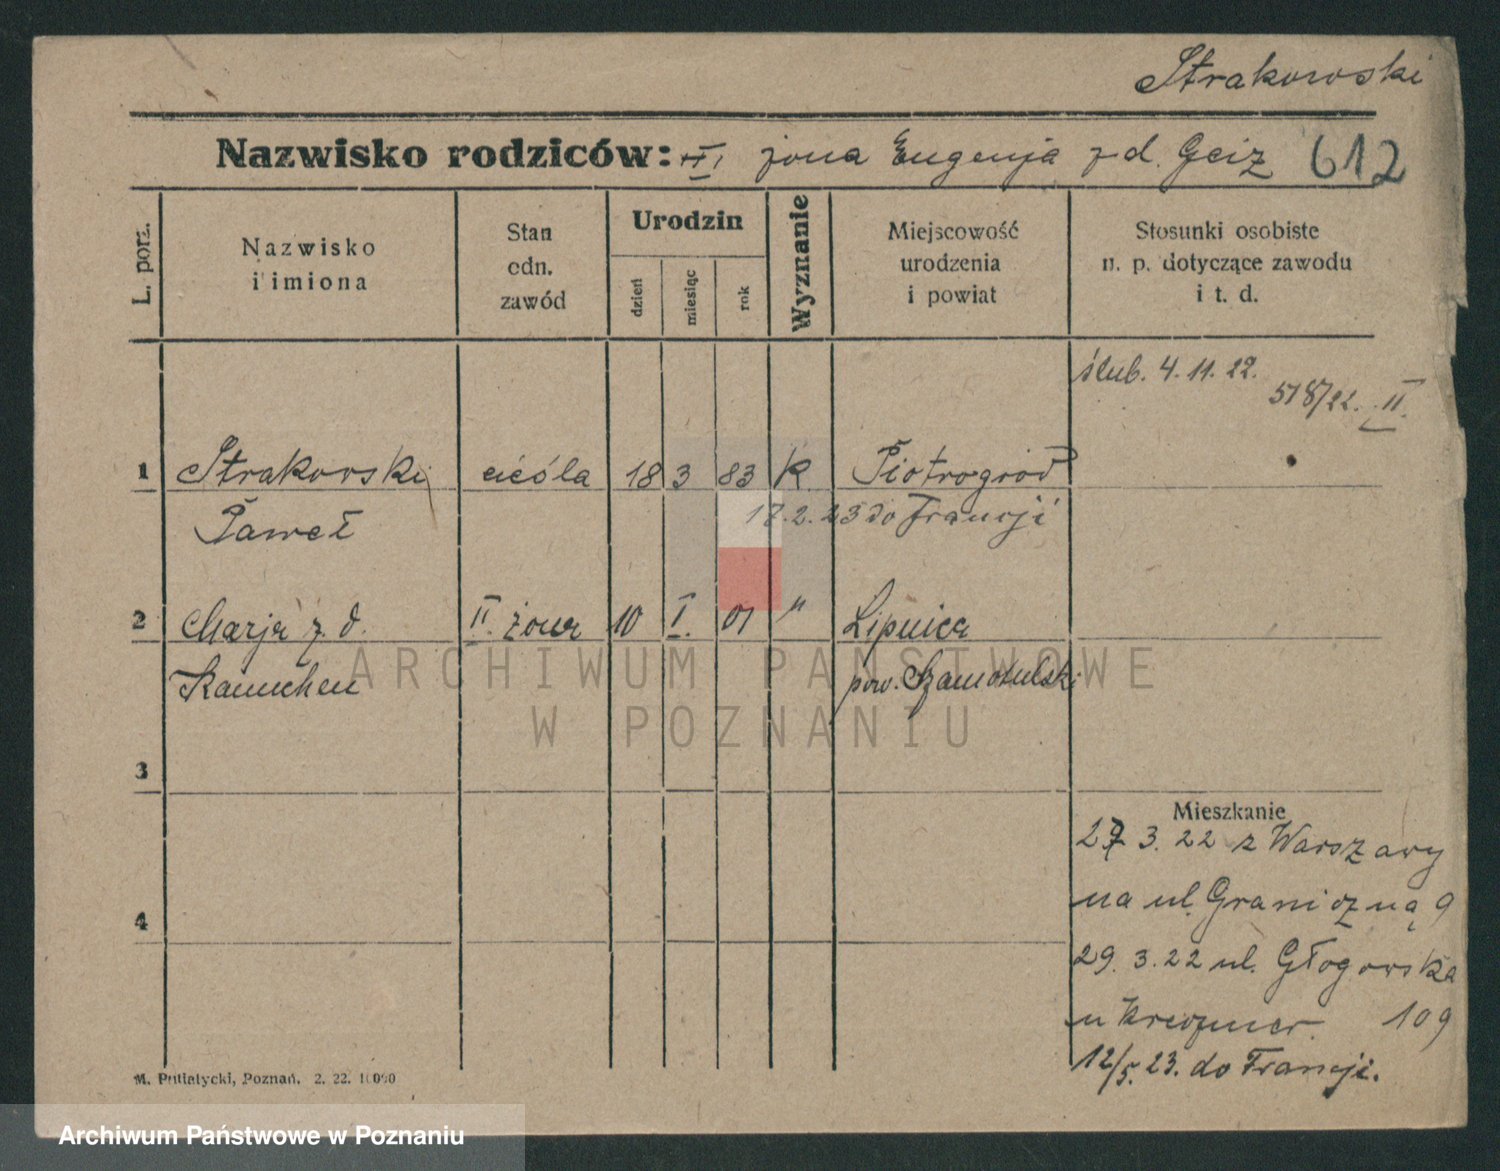 Strakowski
Nazwisko rodziców: II, żona Eugenja z d. Geiz 612
L. porz.
Nazwisko i imiona
Stan cdn. zawód
Urodzin
dzień miesiąc rok
Wyznanie
Miejscowość urodzenia i powiat
Stosunki osobiste n. p. dotyczące zawodu i t. d.
ślub. 4. 11. 22.
518/22. II.
1 Strakowski cieśla 18 3 83 K Piotrogród
Paweł 17.2.23 do Francji
2 Marja z d. II. żona 10 I. 01 " Lipnica
Kamchen pow. Szamotulski
ARCHIWUM PAŃSTWOWE
W POZNANIU
3
Mieszkanie
3. 22 z Warszawy
4 na ul. Graniczną 9
29. 3. 22 ul. Głogowska
u 109
12/5. 23. do Francji.
M. Putiatycki, Poznań. 2. 22. 10000
Archiwum Państwowe w Poznaniu